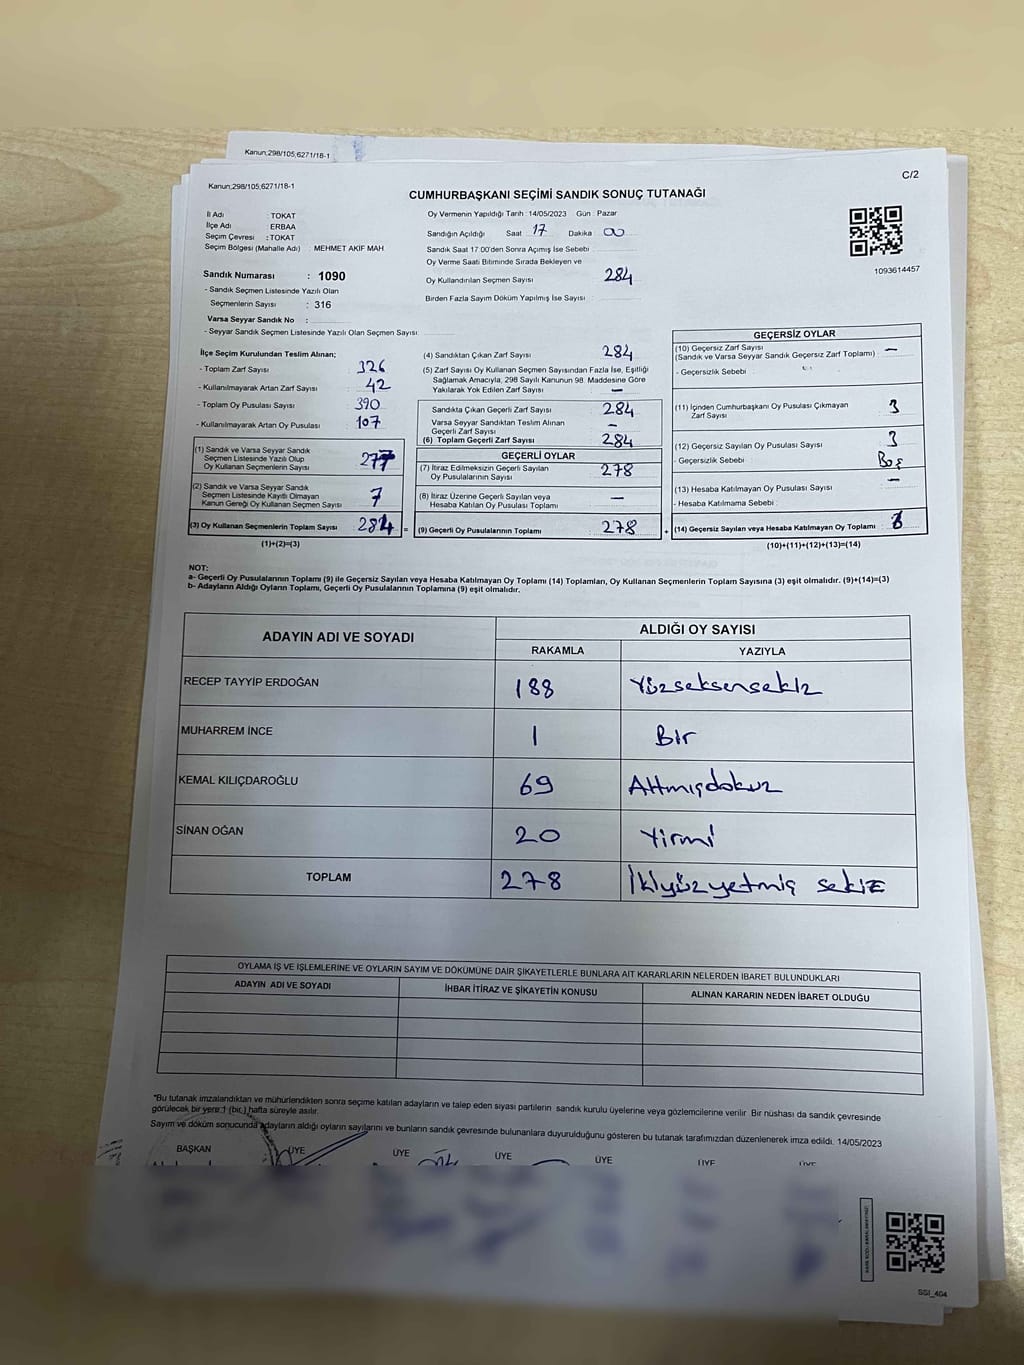 Kanun;298/105;6271/18-1
Kanun;298/105;6271/18-1
C/2
CUMHURBAŞKANI SEÇİMİ SANDIK SONUÇ TUTANAĞI
İl Adı : TOKAT
İlçe Adı ERBAA
Seçim Çevresi : TOKAT
Seçim Bölgesi (Mahalle Adı) : MEHMET AKIF MAH
Oy Vermenin Yapıldığı Tarih :14/05/2023 Gün : Pazar
Sandığın Açıldığı Saat 17 Dakika 00
Sandık Saat 17:00'den Sonra Açımış İse Sebebi
Oy Verme Saati Bitiminde Sırada Bekleyen ve
Oy Kullandırılan Seçmen Sayısı 284
Birden Fazla Sayım Döküm Yapılmış İse Sayısı :
1093614457
Sandık Numarası : 1090
- Sandık Seçmen Listesinde Yazılı Olan
Seçmenlerin Sayısı : 316
Varsa Seyyar Sandık No :
- Seyyar Sandık Seçmen Listesinde Yazılı Olan Seçmen Sayısı:
İlçe Seçim Kurulundan Teslim Alınan;
- Toplam Zarf Sayısı : 326
- Kullanılmayarak Artan Zarf Sayısı : 42
- Toplam Oy Pusulası Sayısı : 390
- Kullanılmayarak Artan Oy Pusulası : 107
(1) Sandık ve Varsa Seyyar Sandık
Seçmen Listesinde Yazılı Olup
Oy Kullanan Seçmenlerin Sayısı : 277
(2) Sandık ve Varsa Seyyar Sandık
Seçmen Listesinde Kayıtlı Olmayan
Kanun Gereği Oy Kullanan Seçmen Sayısı : 7
(3) Oy Kullanan Seçmenlerin Toplam Sayısı : 284 =
(1)+(2)=(3)
(4) Sandıktan Çıkan Zarf Sayısı : 284
(5) Zarf Sayısı Oy Kullanan Seçmen Sayısından Fazla İse, Eşitliği
Sağlamak Amacıyla; 298 Sayılı Kanunun 98. Maddesine Göre
Yakılarak Yok Edilen Zarf Sayısı : —
Sandıkta Çıkan Geçerli Zarf Sayısı : 284
Varsa Seyyar Sandıktan Teslim Alınan
Geçerli Zarf Sayısı : —
(6) Toplam Geçerli Zarf Sayısı : 284
GEÇERLİ OYLAR
(7) İtiraz Edilmeksizin Geçerli Sayılan
Oy Pusulalarının Sayısı : 278
(8) İtiraz Üzerine Geçerli Sayılan veya
Hesaba Katılan Oy Pusulası Toplamı : —
(9) Geçerli Oy Pusulalarının Toplamı : 278 +
GEÇERSİZ OYLAR
(10) Geçersiz Zarf Sayısı : —
(Sandık ve Varsa Seyyar Sandık Geçersiz Zarf Toplamı)
- Geçersizlik Sebebi :
(11) İçinden Cumhurbaşkanı Oy Pusulası Çıkmayan
Zarf Sayısı : 3
(12) Geçersiz Sayılan Oy Pusulası Sayısı : 3
- Geçersizlik Sebebi : Boş
(13) Hesaba Katılmayan Oy Pusulası Sayısı : —
- Hesaba Katılmama Sebebi :
(14) Geçersiz Sayılan veya Hesaba Katılmayan Oy Toplamı :
(10)+(11)+(12)+(13)=(14)
NOT:
a- Geçerli Oy Pusulalarının Toplamı (9) ile Geçersiz Sayılan veya Hesaba Katılmayan Oy Toplamı (14) Toplamları, Oy Kullanan Seçmenlerin Toplam Sayısına (3) eşit olmalıdır. (9)+(14)=(3)
b- Adayların Aldığı Oyların Toplamı, Geçerli Oy Pusulalarının Toplamına (9) eşit olmalıdır.
ADAYIN ADI VE SOYADI ALDIĞI OY SAYISI
RAKAMLA YAZIYLA
RECEP TAYYİP ERDOĞAN 188 Yüzseksensekiz
MUHARREM İNCE 1 Bir
KEMAL KILIÇDAROĞLU 69 Altmışdokuz
SİNAN OĞAN 20 Yirmi
TOPLAM 278 İkiyüzyetmiş sekiz
OYLAMA İŞ VE İŞLEMLERİNE VE OYLARIN SAYIM VE DÖKÜMÜNE DAİR ŞİKAYETLERLE BUNLARA AİT KARARLARIN NELERDEN İBARET BULUNDUKLARI
ADAYIN ADI VE SOYADI İHBAR İTİRAZ VE ŞİKAYETİN KONUSU ALINAN KARARIN NEDEN İBARET OLDUĞU
*Bu tutanak imzalandıktan ve mühürlendikten sonra seçime katılan adayların ve talep eden siyasi partilerin sandık kurulu üyelerine veya gözlemcilerine verilir Bir nüshası da sandık çevresinde
görülecek bir yere 1 (bir.) hafta süreyle asılır.
Sayım ve döküm sonucunda adayların aldığı oyların sayılarını ve bunların sandık çevresinde bulunanlara duyurulduğunu gösteren bu tutanak tarafımızdan düzenlenerek imza edildi. 14/05/2023
BAŞKAN ÜYE ÜYE ÜYE ÜYE ÜYE ÜYE
SSI_404